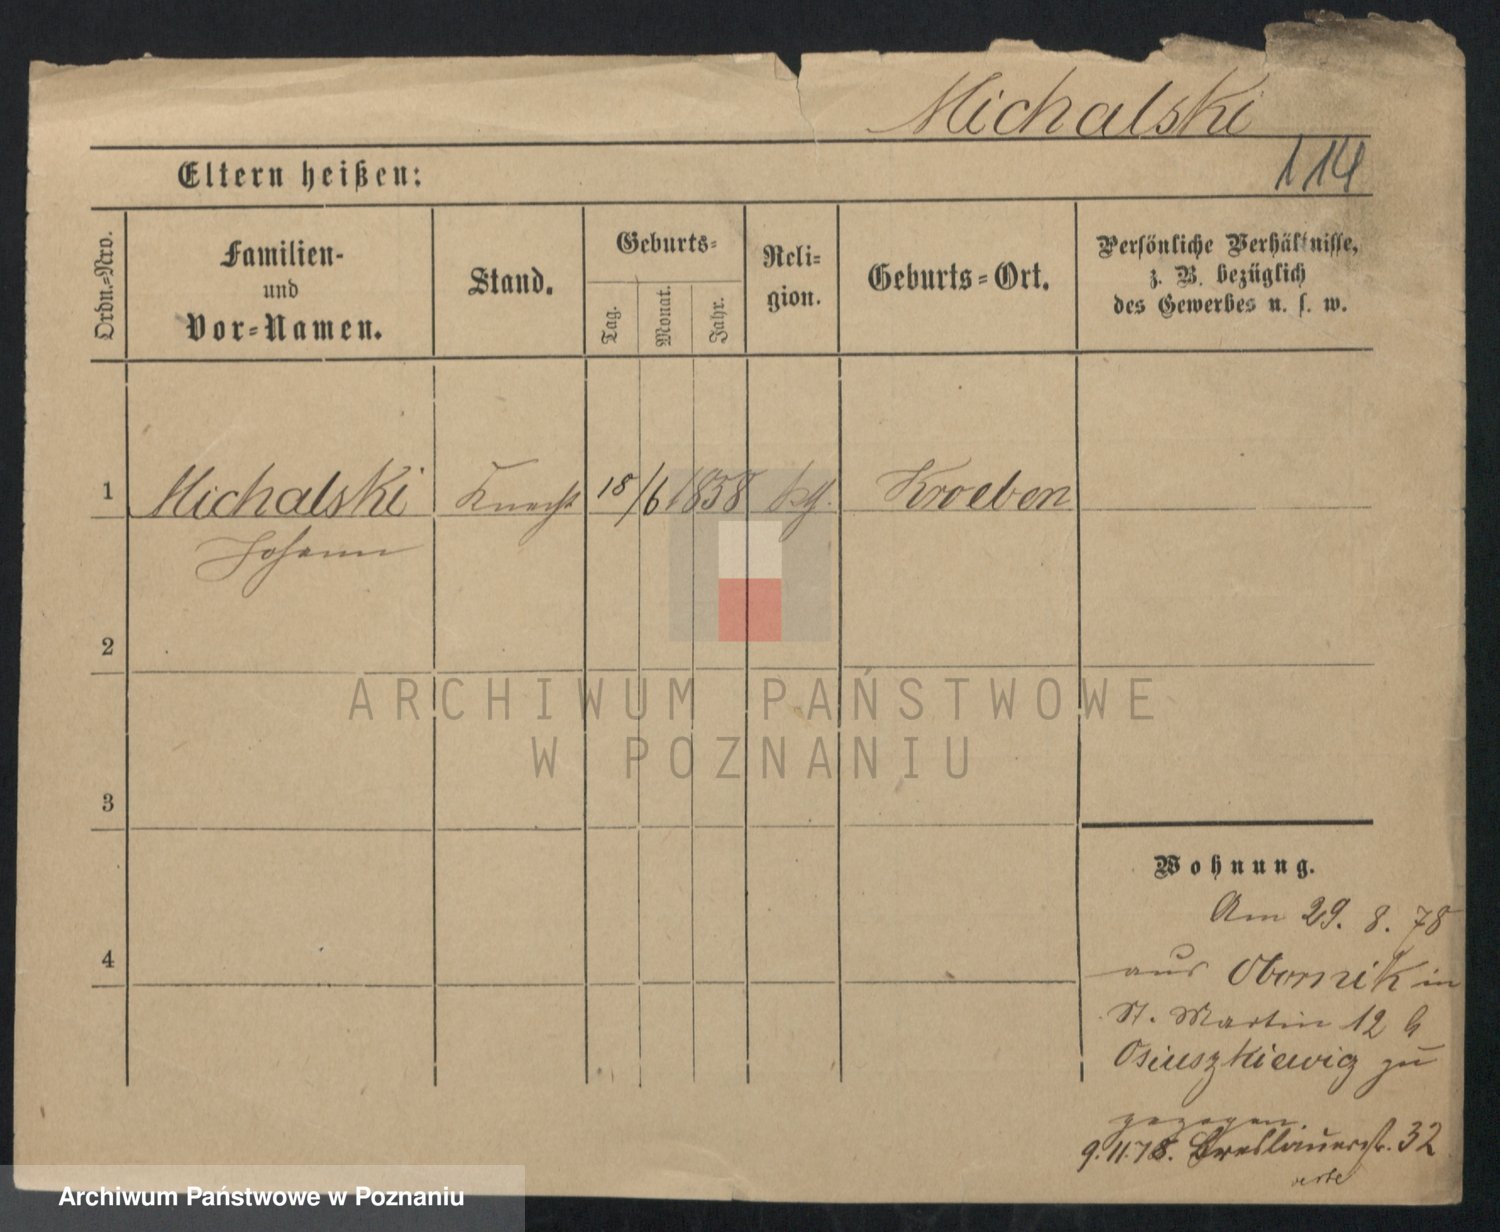 Michalski
114
Eltern heißen:
Ordn.-Nro.
Familien-
und
Vor-Namen.
Stand.
Geburts-
Tag.
Monat.
Jahr.
Reli-
gion.
Geburts-Ort.
Persönliche Verhältnisse,
z. B. bezüglich
des Gewerbes u. s. w.
1
Michalski
Johann
Knecht
18/6 1858
kth.
Kroeben
2
3
4
Wohnung.
Am 29. 8. 78
aus Obornik in
St. Martin 12 b
Osiuszkiewicz zu
gezogen.
9.11.78. Breslauerstr. 32
ARCHIWUM PAŃSTWOWE
W POZNANIU
Archiwum Państwowe w Poznaniu